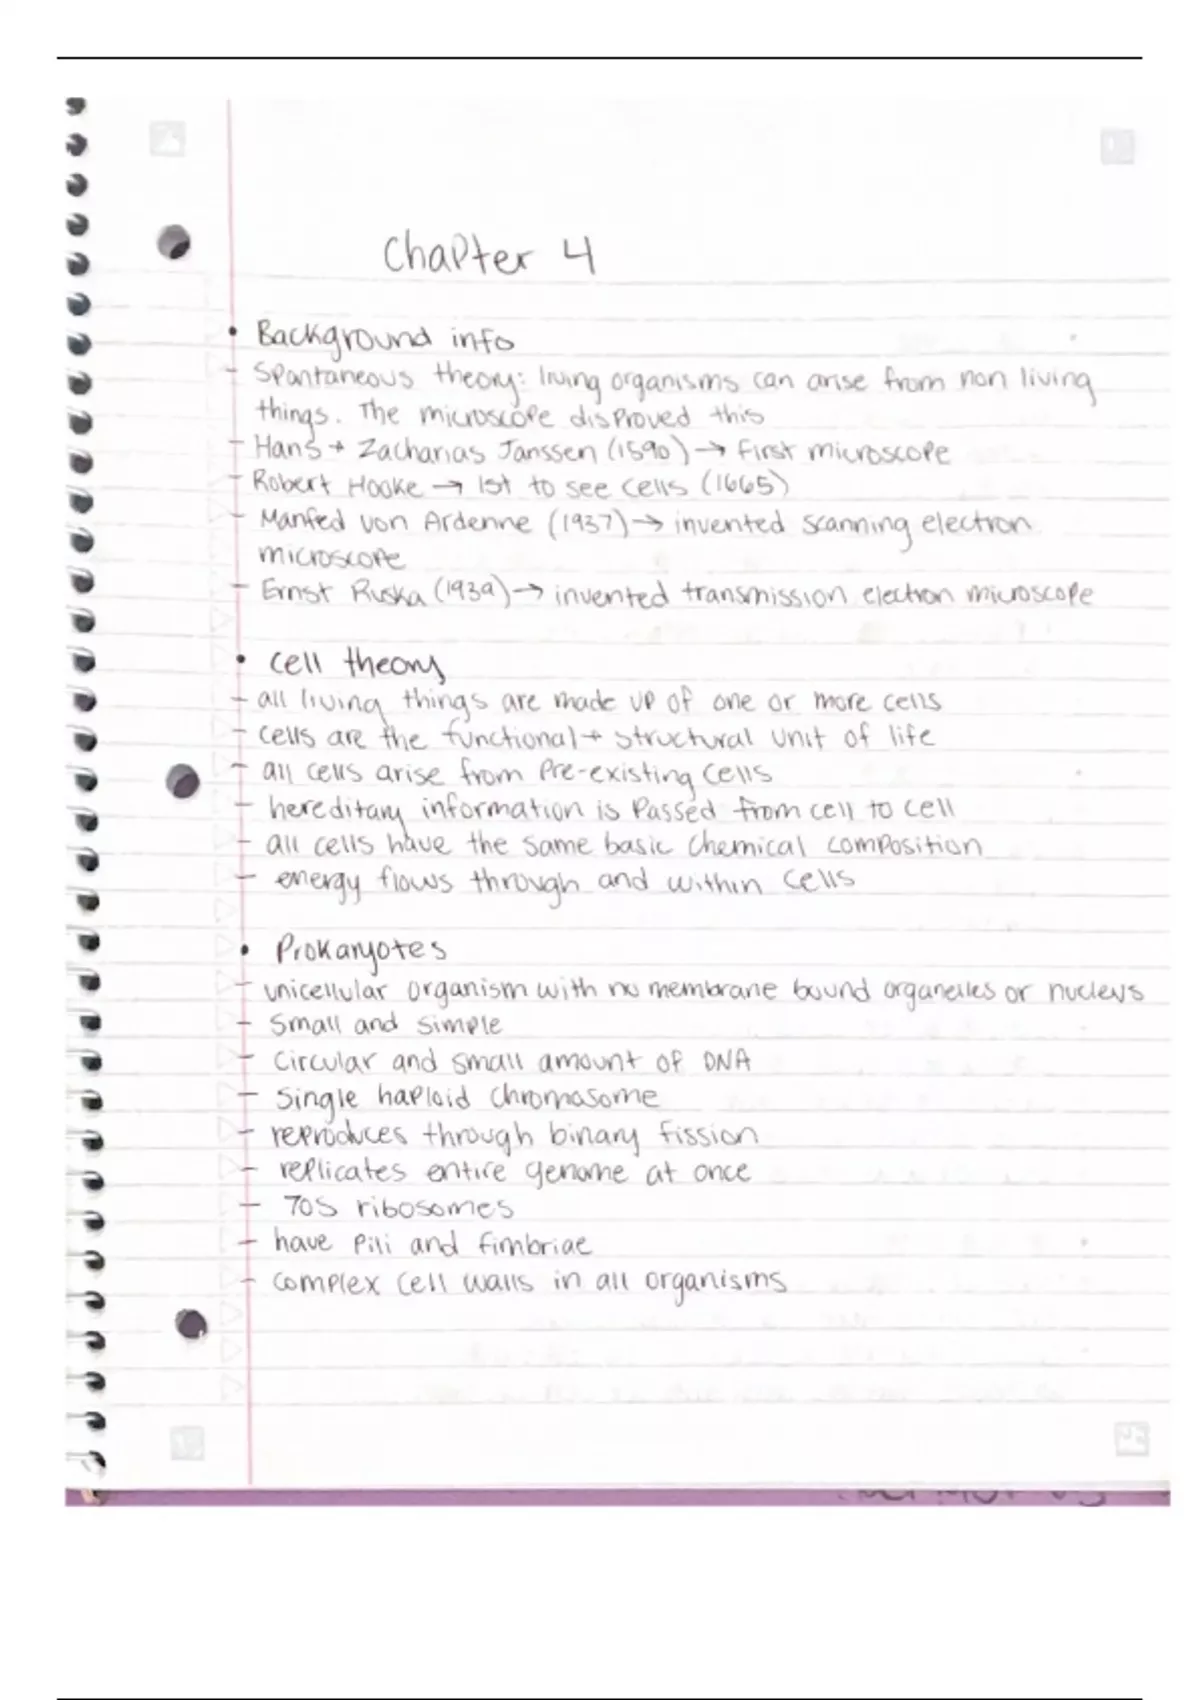 Chapter 4
• Background info
- Spontaneous theory: living organisms can arise from non living
things. The microscope disproved this
- Hans + Zacharias Janssen (1590) → first microscope
- Robert Hooke → 1st to see cells (1665)
- Manfed von Ardenne (1937) → invented scanning electron
microscope
- Ernst Ruska (1939) → invented transmission electron microscope
• Cell theory
- all living things are made up of one or more cells
- cells are the functional + structural unit of life
- all cells arise from pre-existing cells
- hereditary information is passed from cell to cell
- all cells have the same basic chemical composition
- energy flows through and within cells
• Prokaryotes
- unicellular organism with no membrane bound organelles or nucleus
- small and simple
- circular and small amount of DNA
- single haploid chromosome
- reproduces through binary fission
- replicates entire genome at once
- 70S ribosomes
- have pili and fimbriae
- complex cell walls in all organisms